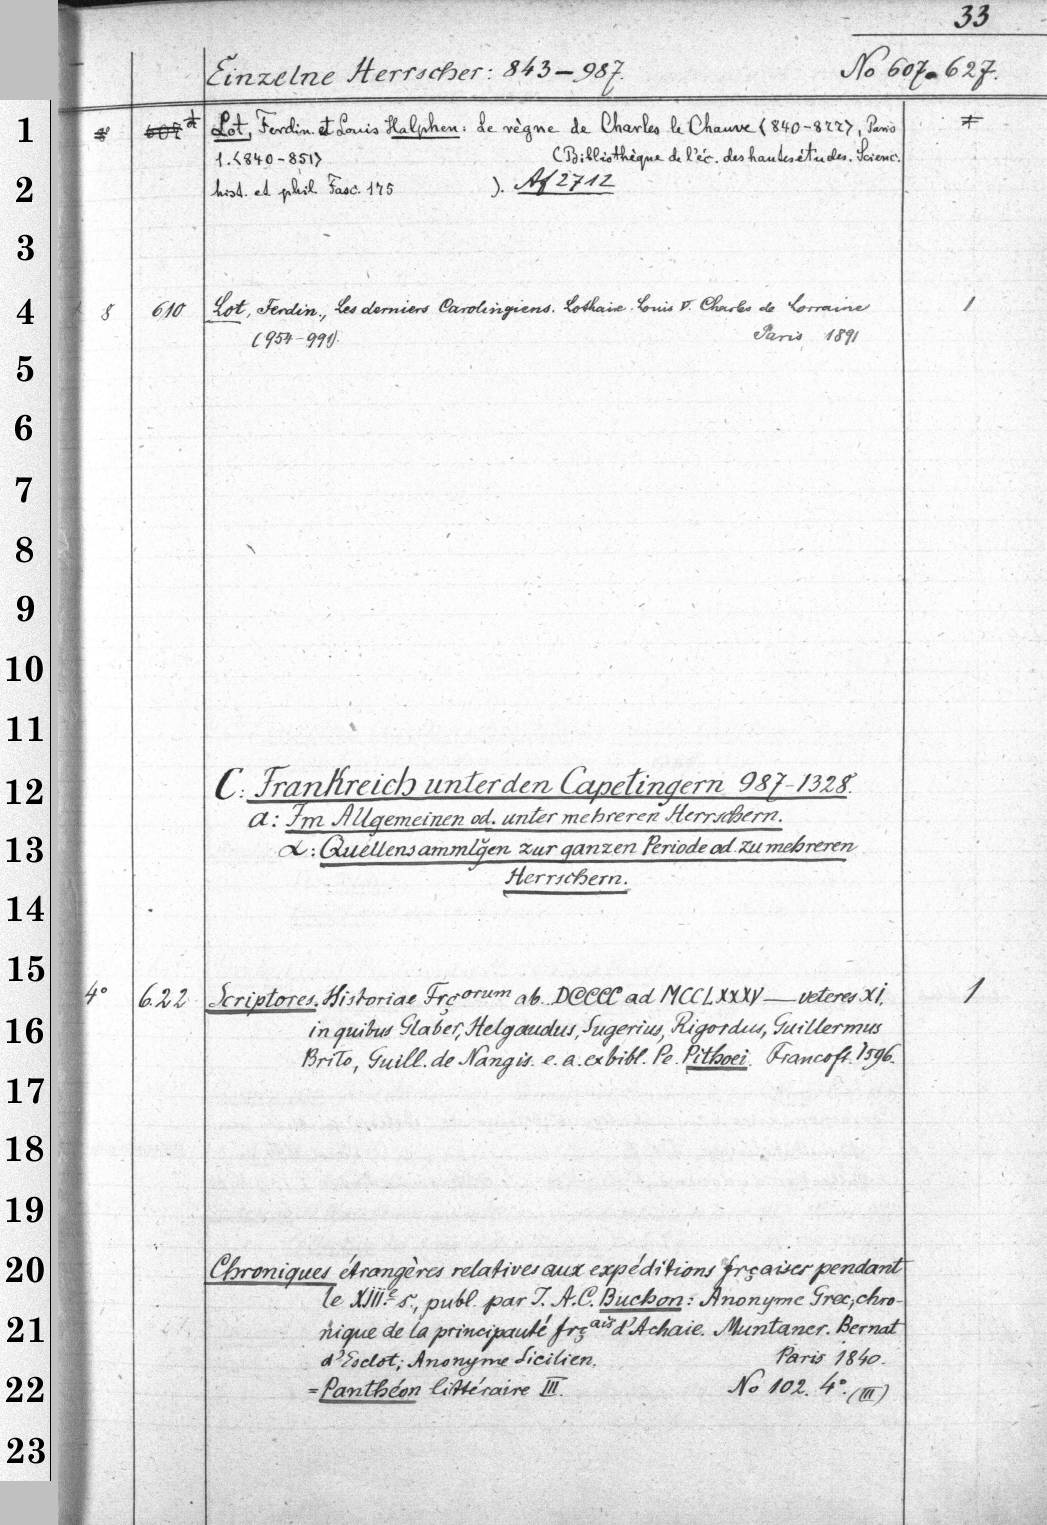 33
Einzelne Herrscher: 843–987.
No 607-627.
1
8 607 Lot, Ferdin. et Louis Halphen: Le règne de Charles le Chauve <840-877>, Paris 1
1. <840-851> (Bibliothèque de l'éc. des hautes études. Scienc.
2
hist. et phil Fasc. 175 ). Af 2712
3
4
8 610 Lot, Ferdin., Les derniers Carolingiens. Lothaire. Louis V. Charles de Lorraine 1
(954-991). Paris 1891
5
6
7
8
9
10
11
12
C: Frankreich unter den Capetingern 987-1328.
a: Im Allgemeinen od. unter mehreren Herrschern.
13
α: Quellensammlg̃en zur ganzen Periode od. zu mehreren
Herrschern.
14
15
4° 622 Scriptores. Historiae Frçorum ab. DCCCC ad MCCLXXXV — veteres XI, 1
16
in quibus Glaber, Helgaudus, Sugerius, Rigordus, Guillermus
Brito, Guill. de Nangis. e. a. ex bibl. Pe. Pithoei. Francoft. 1596.
17
18
19
20
Chroniques étrangères relatives aux expéditions frçaises pendant
le XIIIe s., publ. par J. A. C. Buchon: Anonyme Grec, chro-
21
nique de la principauté frçais d'Achaie. Muntaner. Bernat
d'Esclot; Anonyme Sicilien. Paris 1840.
22
= Panthéon littéraire III. No 102. 4°. (III)
23